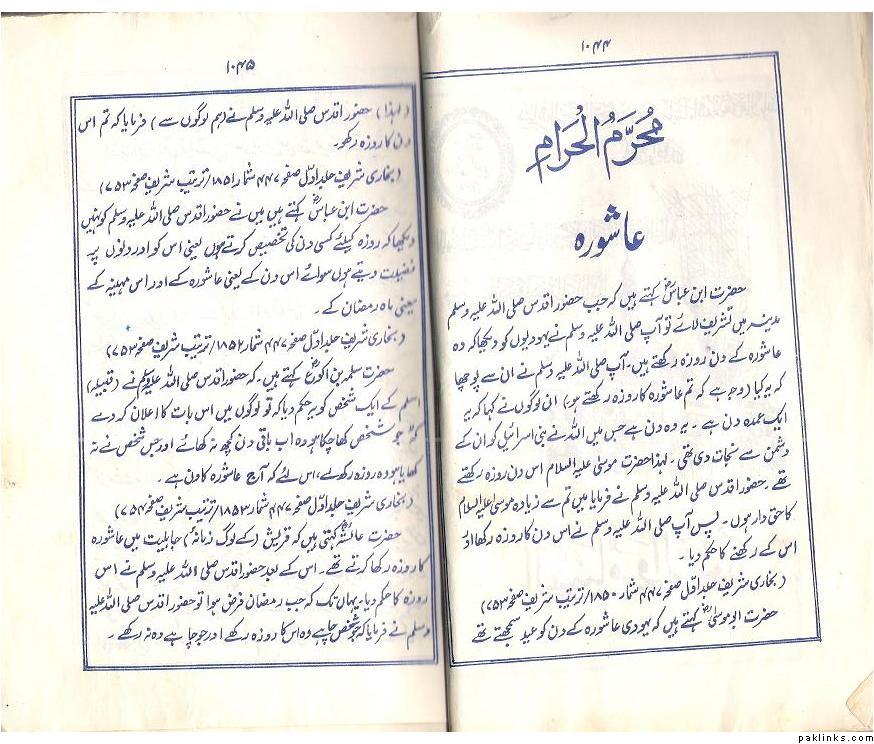 ۱۰۴۴
مُحَرَّمُ الْحَرَامِ
عاشورہ
حضرت ابن عباسؓ کہتے ہیں کہ جب حضور اقدس صلی اللہ علیہ وسلم
مدینہ میں تشریف لائے تو آپ صلی اللہ علیہ وسلم نے یہودیوں کو دیکھا کہ وہ
عاشورہ کے دن روزہ رکھتے ہیں۔ آپ صلی اللہ علیہ وسلم نے ان سے پوچھا
کہ یہ کیا (وجہ ہے کہ تم عاشورہ کا روزہ رکھتے ہو) ان لوگوں نے کہا کہ یہ
ایک عمدہ دن ہے۔ یہ وہ دن ہے جس میں اللہ نے بنی اسرائیل کو ان کے
دشمن سے نجات دی تھی۔ لہذا حضرت موسیٰ علیہ السلام اس دن روزہ رکھتے
تھے۔ حضور اقدس صلی اللہ علیہ وسلم نے فرمایا میں تم سے زیادہ موسیٰ علیہ السلام
کا حق دار ہوں۔ پس آپ صلی اللہ علیہ وسلم نے اس دن کا روزہ رکھا اور
اس کے رکھنے کا حکم دیا۔
(بخاری شریف جلد اوّل صفحہ ۴۴۷ شمار ۱۸۵۰/ترتیب شریف صفحہ ۷۵۳)
حضرت ابو موسیٰؓ کہتے ہیں کہ یہودی عاشورہ کے دن کو عید سمجھتے تھے
۱۰۴۵
(لہذا) حضور اقدس صلی اللہ علیہ وسلم نے (ہم لوگوں سے) فرمایا کہ تم اس
دن کا روزہ رکھو۔
(بخاری شریف جلد اوّل صفحہ ۴۴۷ شمار ۱۸۵۱/ترتیب شریف صفحہ ۷۵۳)
حضرت ابن عباسؓ کہتے ہیں میں نے حضور اقدس صلی اللہ علیہ وسلم کو نہیں
دیکھا کہ روزہ کیلئے کسی دن کی تخصیص کرتے ہوں یعنی اس کو اور دنوں پر
فضیلت دیتے ہوں سوائے اس دن کے یعنی عاشورہ کے اور اس مہینہ کے
یعنی ماہ رمضان کے۔
(بخاری شریف جلد اوّل صفحہ ۴۴۷ شمار ۱۸۵۲/ترتیب شریف صفحہ ۷۵۳)
حضرت سلمہ بن اکوعؓ کہتے ہیں۔ کہ حضور اقدس صلی اللہ علیہ وسلم نے (قبیلہ)
اسلم کے ایک شخص کو یہ حکم دیا کہ تو لوگوں میں اس بات کا اعلان کر دے
کہ ”جو شخص کھا چکا ہو وہ اب باقی دن کچھ نہ کھائے اور جس شخص نے نہ
کھایا ہو وہ روزہ رکھ لے، اس لئے کہ آج عاشورہ کا دن ہے۔
(بخاری شریف جلد اوّل صفحہ ۴۴۷ شمار ۱۸۵۳/ترتیب شریف صفحہ ۷۵۴)
حضرت عائشہؓ کہتی ہیں کہ قریش (کے لوگ زمانہ) جاہلیت میں عاشورہ
کا روزہ رکھا کرتے تھے۔ اس کے بعد حضور اقدس صلی اللہ علیہ وسلم نے اس
روزہ کا حکم دیا۔ یہاں تک کہ جب رمضان فرض ہوا تو حضور اقدس صلی اللہ علیہ
وسلم نے فرمایا کہ جو شخص چاہے وہ اس کا روزہ رکھے اور جو چاہے وہ نہ رکھے۔
paklinks.com